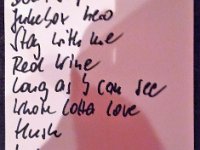 Jukebox hero
Stay with me
Red Wine
Long as I can see
Whole lotta love
Hush